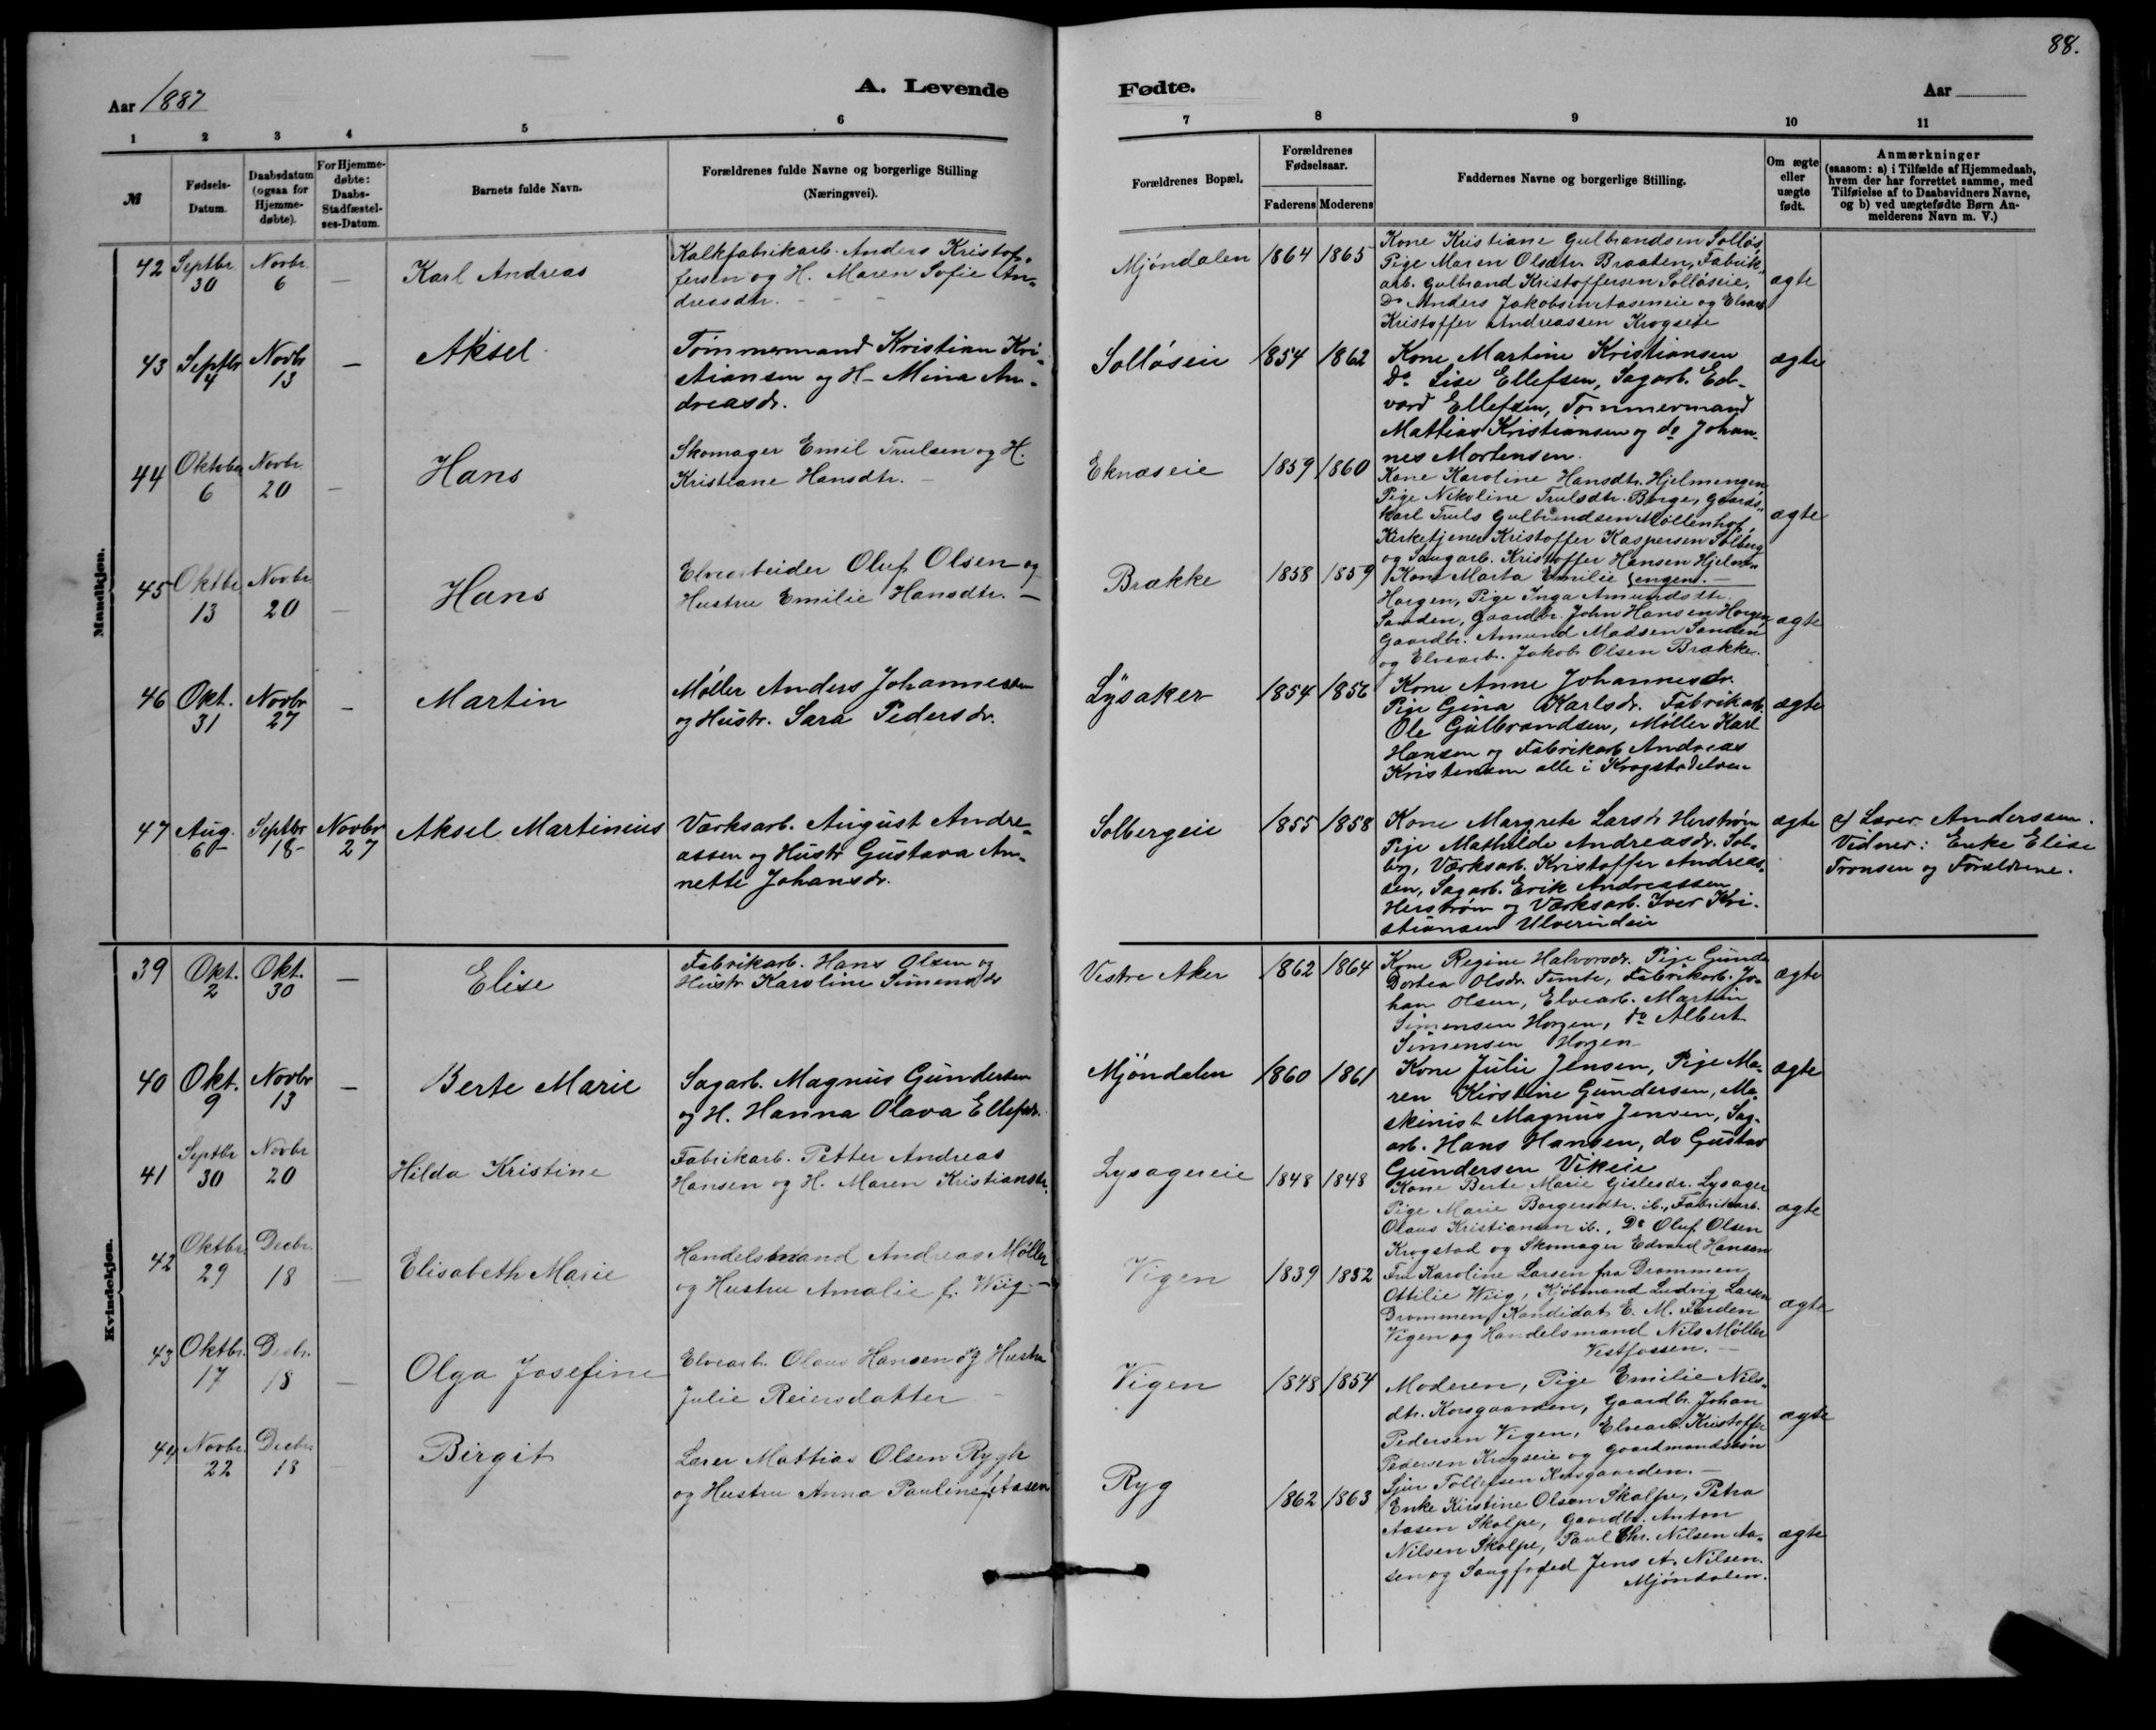 88.
Aar 1887
A. Levende
Fødte.
Aar
1 2 3 4 5 6
7 8 9 10 11
№
Fødsels-
Datum.
Daabsdatum
(ogsaa for
Hjemme-
døbte).
For Hjemme-
døbte:
Daabs-
Stadfæstel-
ses-Datum.
Barnets fulde Navn.
Forældrenes fulde Navne og borgerlige Stilling
(Næringsvei).
Forældrenes Bopæl.
Forældrenes
Fødselsaar.
Faderens Moderens
Faddernes Navne og borgerlige Stilling.
Om ægte
eller
uægte
født.
Anmærkninger
(saasom: a) i Tilfælde af Hjemmedaab,
hvem der har forrettet samme, med
Tilføielse af to Daabsvidners Navne,
og b) ved uægtefødte Børn An-
melderens Navn m. V.)
Mandkjøn.
42 Septbr. 30 Novbr. 6 — Karl Andreas
Kalkfabrikarb. Anders Kristof-
fersen og H. Maren Sofie An-
dreasdtr.
Mjöndalen 1864 1865
Kone Kristiane Gulbrandsen Solløs,
Pige Maren Olsdtr. Braaten, Fabrik-
arb. Gulbrand Kristoffersen Solløseie,
Do Anders Jakobsen Aaseneie og Elvarb.
Kristoffer Andreassen Krogseie
ægte
43 Septbr 4 Novbr 13 — Aksel
Tømmermand Kristian Kri-
stiansen og H. Mina An-
dreasdr.
Solløseie 1854 1862
Kone Martine Kristiansen
Do Lise Ellefsen, Sagarb. Ed-
vard Ellefsen, Tømmermand
Mathias Kristiansen og do Johan-
nes Mortensen.
ægte
44 Oktober 6 Novbr. 20 — Hans
Skomager Emil Trulsen og H.
Kristiane Hansdtr.
Eknæseie 1859 1860
Kone Karoline Hansdtr. Hjelmengen
Pige Nikoline Trulsdtr. Berge, Gaards-
karl Truls Gulbrandsen Møllenhof,
Kirketjener Kristoffer Kaspersen Solberg
og Saugarb. Kristoffer Hansen Hjelm-
engen.
ægte
45 Oktbr. 13 Novbr. 20 — Hans
Elvearbeider Oluf Olsen og
Hustru Emilie Hansdtr. —
Brække 1858 1859
Kone Marta Emilie
Horgen, Pige Inga Amundsdtr.
Sanden, Gaardbr. John Hansen Horgen,
Gaardbr. Amund Madsen Sanden
og Elvearb. Jakob Olsen Brække.
ægte
46 Okt. 31 Novbr 27 — Martin
Møller Anders Johannesen
og Hustr. Sara Pedersdr.
Lysaker 1854 1856
Kone Anne Johannesdr.
Pige Gina Karlsdr. Fabrikarb.
Ole Gulbrandsen, Møller Karl
Hansen og Fabrikarb. Andreas
Kristensen alle i Krogstadelven
ægte
47 Aug. 6 Septbr 18 Novbr 27 Aksel Martinius
Værksarb. August Andre-
assen og Hustr Gustava An-
nette Johansdr.
Solbergeie 1855 1858
Kone Margrete Larsdr Herstrøm
Pige Mathilde Andreasdr. Sol-
berg, Værksarb. Kristoffer Andreas-
sen, Sagarb. Erik Andreassen
Herstrøm og Værksarb. Iver Kri-
stiansen Ulverudeie
ægte
a) Lærer Anderssen.
Vidner: Enke Elise
Tronsen og Forældrene.
Kvindekjøn.
39 Okt. 2 Okt. 30 — Elise
Fabrikarb. Hans Olsen og
Hustr Karoline Simensdr
Vestre Aker 1862 1864
Kone Regine Halvorsdr. Pige Gunda
Dortea Olsdr. Temte, Fabrikarb. Jo-
han Olsen, Elvearb. Martin
Simensen Horgen, do Albert
Simensen Horgen
ægte
40 Okt. 9 Novbr 13 — Berte Marie
Sagarb. Magnus Gundersen
og H. Hanna Olava Ellefsdr.
Mjöndalen 1860 1861
Kone Julie Jensen, Pige Ma-
ren Kirstine Gundersen, Ma-
skinist Magnus Jensen, Sag-
arb. Hans Hansen, do Gustav
Gundersen Vikeie
ægte
41 Septbr 30 Novbr 20 Hilda Kristine
Fabrikarb. Petter Andreas
Hansen og H. Maren Kristiansdtr.
Lysagereie 1848 1848
Kone Berte Marie Gislesdr. Lysager
Pige Marie Borgersdtr. ib., Fabrikarb.
Olaus Kristiansen ib., Do Oluf Olsen
Krogstad og Skomager Edvard Hansen
ægte
42 Oktbr. 29 Decbr. 18 — Elisabeth Marie
Handelsmand Andreas Møller
og Hustru Amalie f. Wiig —
Vigen 1839 1852
Fru Karoline Larsen fra Drammen,
Ottilie Wiig, Kjøbmand Ludvig Larsen
Drammen, Kandidat E. M. Farden
Vigen og Handelsmand Nils Møller
Vestfossen. —
ægte
43 Oktbr. 17 Decbr. 18 — Olga Josefine
Elvearb. Olaus Hansen og Hustru
Julie Reiersdatter
Vigen 1848 1854
Moderen, Pige Emilie Nils-
dtr. Korsgaarden, Gaardbr. Johan
Pedersen Vigen, Elvearb. Kristoffer
Pedersen Krogseie og Gaardmandssøn
Sjur Tollefsen Korsgaarden. —
ægte
44 Novbr. 22 Decbr. 18 — Birgit
Lærer Mattias Olsen Rygh
og Hustru Anna Pauline f. Aasen
Ryg 1862 1863
Enke Kirstine Olsen Skalpe, Petra
Aasen Skalpe, Gaardbr. Anton
Nilsen Skalpe, Paul Chr. Nilsen Aa-
sen og Saugfoged Jens A. Nilsen.
Mjöndalen.
ægte